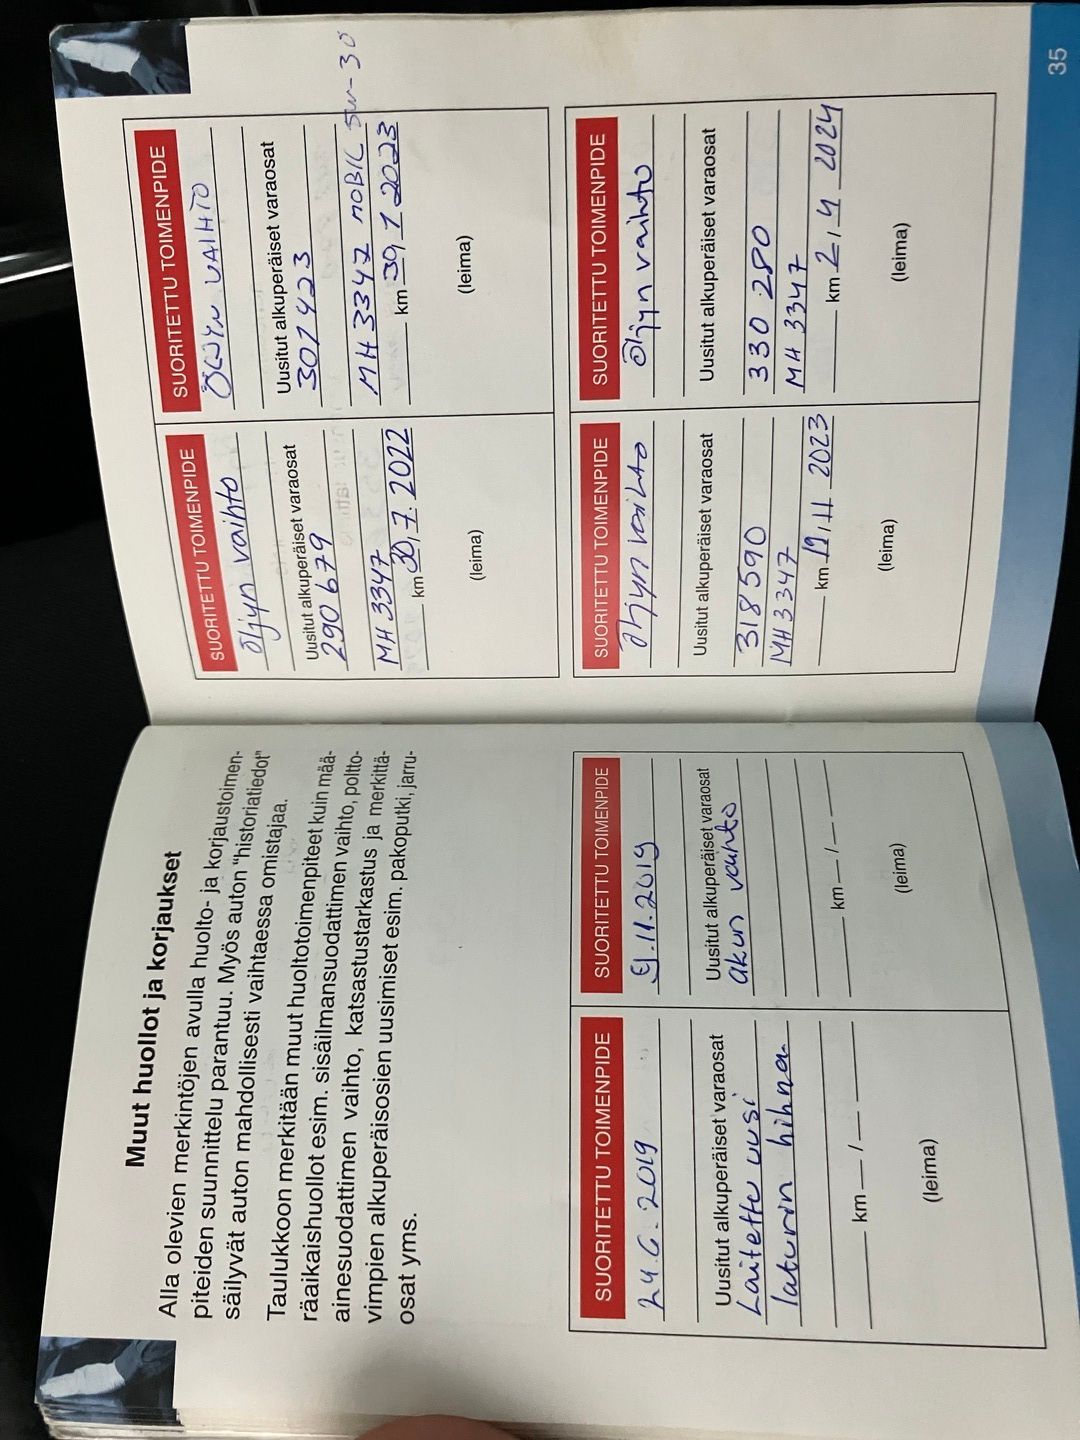 Muut huollot ja korjaukset
Alla olevien merkintöjen avulla huolto- ja korjaustoimen-
piteiden suunnittelu parantuu. Myös auton "historiatiedot"
säilyvät auton mahdollisesti vaihtaessa omistajaa.
Taulukkoon merkitään muut huoltotoimenpiteet kuin mää-
räaikaishuollot esim. sisäilmansuodattimen vaihto, poltto-
ainesuodattimen vaihto, katsastustarkastus ja merkittä-
vimpien alkuperäisosien uusimiset esim. pakoputki, jarru-
osat yms.
SUORITETTU TOIMENPIDE
24.6.2019
Uusitut alkuperäiset varaosat
Laitettu uusi
laturin hihna
km / 
(leima)
SUORITETTU TOIMENPIDE
9.11.2019
Uusitut alkuperäiset varaosat
akun vaihto
km / 
(leima)
SUORITETTU TOIMENPIDE
öljyn vaihto
Uusitut alkuperäiset varaosat
290 679
MH 3347
km 30,7. 2022
(leima)
SUORITETTU TOIMENPIDE
ÖLJYN VAIHTO
Uusitut alkuperäiset varaosat
301423
MH 3347 MOBIL 5W-30
km 30,1 2023
(leima)
SUORITETTU TOIMENPIDE
öljyn vaihto
Uusitut alkuperäiset varaosat
318590
MH 3347
km 19,11 2023
(leima)
SUORITETTU TOIMENPIDE
öljyn vaihto
Uusitut alkuperäiset varaosat
330 280
MH 3347
km 2,4 2024
(leima)
35